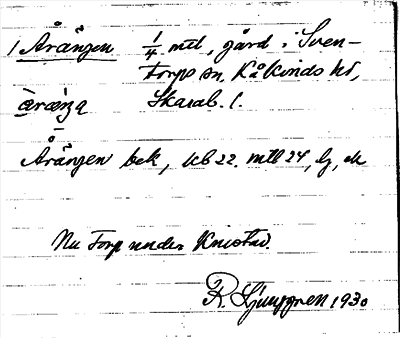 1 Årängen 1/4 mtl, gård i Sven-
torps sn, Kåkinds hd,
åräŋa Skarab. l.
Årängen bek, kb 22. mtl 24, lj, ek
Nu torp under Knistad.
R. Ljunggren 1930